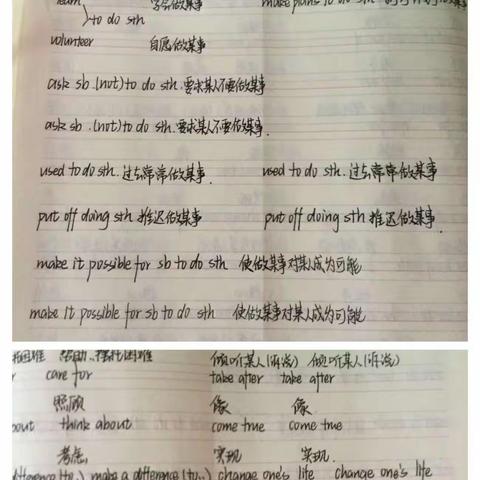 learn 学会做某事 make plans to do sth 制订计划做某事
to do sth
volunteer 自愿做某事
ask sb .(not) to do sth. 要求某人不要做某事
ask sb .(not) to do sth. 要求某人不要做某事.
used to do sth. 过去常常做某事. used to do sth. 过去常常做某事
put off doing sth 推迟做某事 put off doing sth 推迟做某事.
make it possible for sb to do sth 使做某事对某人成为可能
make it possible for sb to do sth 使做某事对某人成为可能
困难 帮助..摆脱困难 倾听某人(诉说) 倾听某人(诉说)
care for take after take after
照顾 像 像
about think about come true come true
考虑, 实现 实现.
make a difference (to..) change one's life change one's life